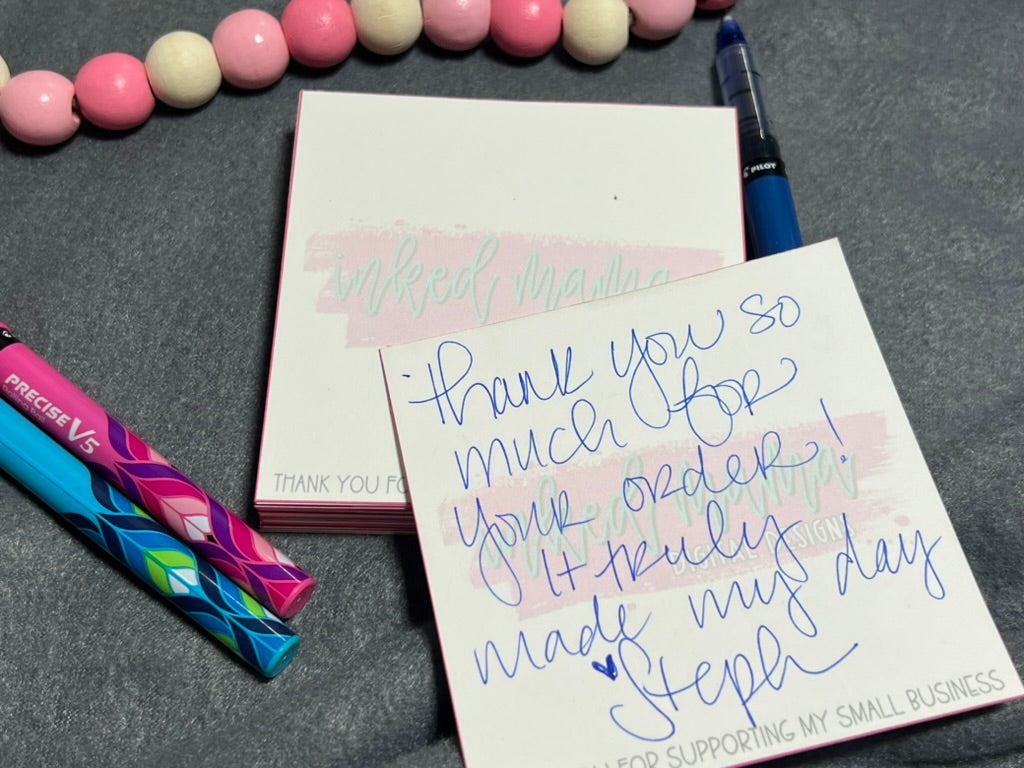 PILOT
inked mama
THANK YOU FO
PRECISE V5
thank you so
much for
your order!
It truly
made my day
Steph
inked mama
DIGITAL DESIGNS
FOR SUPPORTING MY SMALL BUSINESS